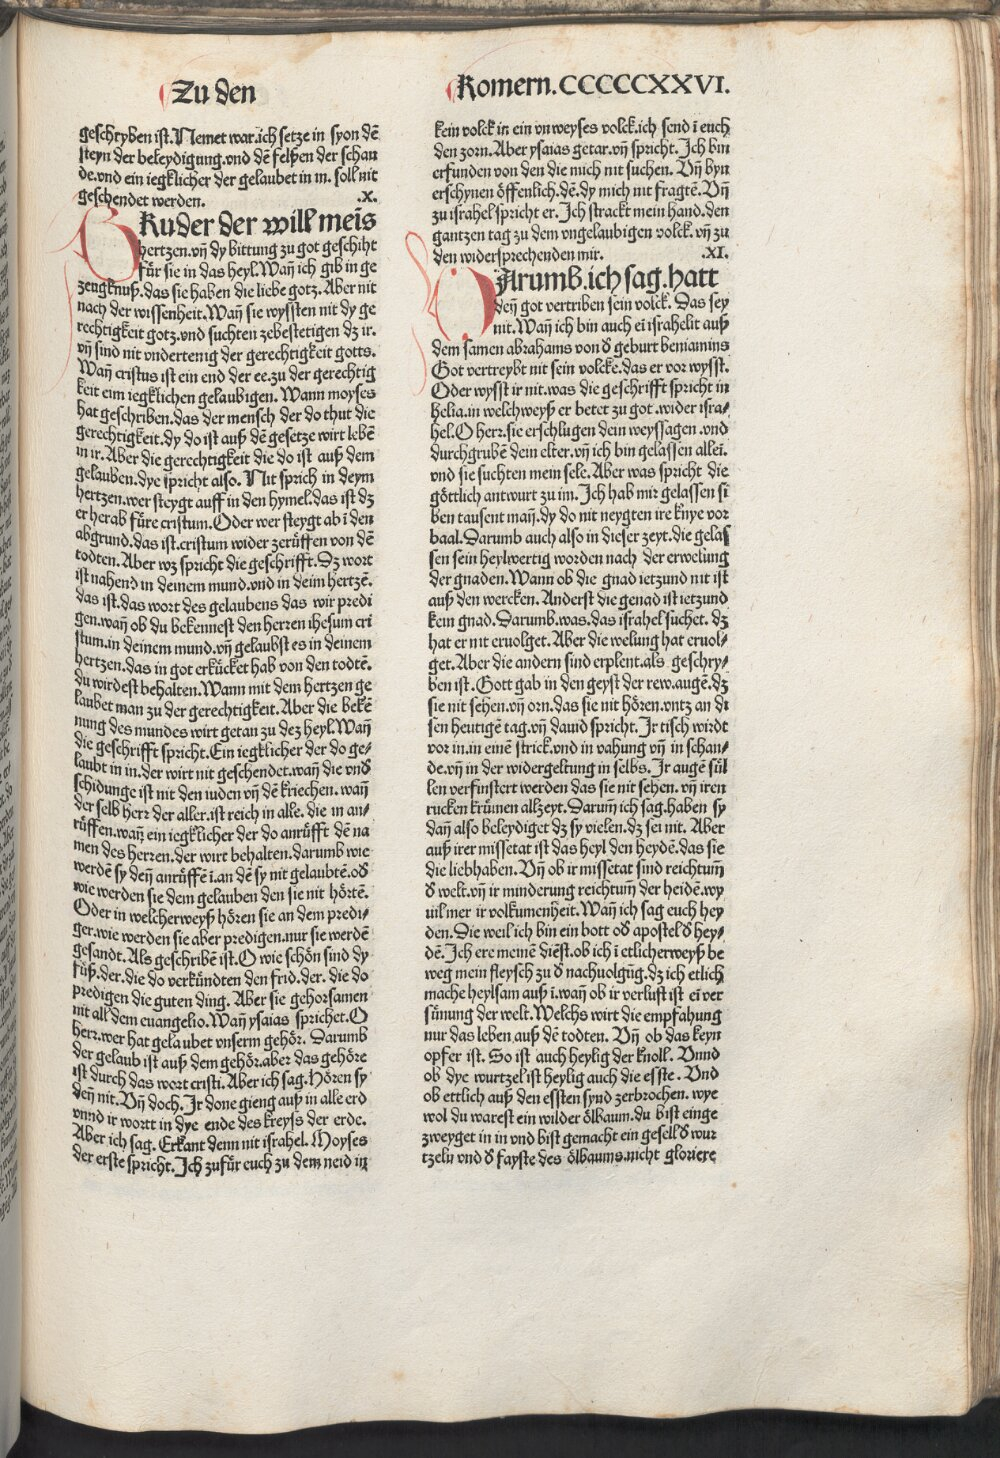 Zu den
Romern.CCCCCXXVI.
geschryben ist.Nemet war.ich setze in syon dē
steyn der beleydigung.vnd dē felßen der schan
de.vnd ein iegklicher der gelaubet in in. soll nit
geschendet werden. .X.
BRuder der will meīs
hertzen.vn̄ dy bittung zu got geschiht
für sie in das heyl.Wan̄ ich gib in ge
zengknuß.das sie haben die liebe gotz. Aber nit
nach der wissenheit.Wan̄ sie wyssten nit dy ge
rechtigkeit gotz.vnd suchten zebestetigen dz ir.
vn̄ sind nit vndertenig der gerechtigkeit gotts.
Wan̄ cristus ist ein end der ee.zu der gerechtig
keit eim iegklichen gelaubigen. Wann moyses
hat geschriben.das der mensch der do thut die
gerechtigkeit.dy do ist auß dē gesetze wirt lebē
in ir. Aber die gerechtigkeit die do ist auß dem
gelauben.dye spricht also. Nit sprich in deym
hertzen.wer steygt auff in den hymel.das ist dz
er herab füre cristum.Oder wer steygt ab ī den
abgrund.das ist.cristum wider zerüffen von dē
todten. Aber wz spricht die geschrifft. Dz wort
ist nahend in deinem mund.vnd in deim hertzē.
das ist.das wort des gelaubens das wir predi
gen.wan̄ ob du bekennest den herren ihesum cri
stum.in deinem mund.vn̄ gelaubst es in deinem
hertzen.das in got erkücket hab von den todtē.
du wirdest behalten.Wann mit dem hertzen ge
laubet man zu der gerechtigkeit. Aber die bekē
nung des mundes wirt getan zu dez heyl.Wan̄
die geschrifft spricht.Ein iegklicher der do ge⸗
laubt in in.der wirt nit geschendet.wan̄ die vnd
schidunge ist nit den iuden vn̄ dē kriechen. wan̄
der selb herr der aller.ist reich in alle. die in an⸗
rüffen.wan̄ ein iegklicher der do anrüfft dē na
men des herren.der wirt behalten.darumb wie
werdē sy den̄ anrüffē ī.an dē sy nit gelaubtē.od
wie werden sie dem gelauben den sie nit hörtē.
Oder in welcherweyß hören sie an dem predi⸗
ger.wie werden sie aber predigen.nur sie werdē
gesandt.Als geschribē ist.O wie schön sind dy
füß.der.die do verkündten den frid.der. die do
predigen die guten ding. Aber sie gehorsamen
nit all dem euangelio.Wan̄ ysaias sprichet.O
herr.wer hat gelaubet vnserm gehör. Darumb
der gelaub ist auß dem gehör.aber das gehöre
ist durch das wort cristi.Aber ich sag.Hören sy
den̄ nit.Vn̄ doch.Ir done gieng auß in alle erd
vnnd ir wortt in dye ende des kreyß der erde.
Aber ich sag. Erkant denn nit israhel. Moyses
der erste spricht.Ich zufür euch zu dem neid in
kein volck in ein vnweyses volck.ich send ī euch
den zorn. Aber ysaias getar.vn̄ spricht. Ich bin
erfunden von den die mich nit suchen. Vn̄ byn
erschynen öffenlich.dē.dy mich nit fragtē.Vn̄
zu israhel spricht er.Ich strackt mein hand.den
gantzen tag zu dem vngelaubigen volck.vn̄ zu
den widersprechenden mir. .XI.
DArumb.ich sag.hatt
den̄ got vertriben sein volck. Das sey
nit.Wan̄ ich bin auch eī israhelit auß
dem samen abrahams von d geburt beniamins
Got vertreybt nit sein volcke.das er vor wysst.
Oder wysst ir nit.was die geschrifft spricht in
helia.in welchweyß er betet zu got .wider isra⸗
hel.O herr.sie erschlugen dein weyssagen .vnd
durchgrubē dein elter.vn̄ ich bin gelassen alleī.
vnd sie suchten mein sele. Aber was spricht die
göttlich antwurt zu im. Ich hab mir gelassen sī
ben tausent man̄.dy do nit neygten ire knye vor
baal.Darumb auch also in dieser zeyt.die gelas
sen sein heylwertig worden nach der erwelung
der gnaden.Wann ob die gnad ietzund nit ist
auß den wercken. Anderst die genad ist ietzund
kein gnad.Darumb.was.das israhel suchet. dz
hat er nit eruolget. Aber die welung hat eruol⸗
get. Aber die andern sind erplent.als geschry⸗
ben ist.Gott gab in den geyst der rew.augē.dz
sie nit sehen.vn̄ orn.das sie nit hören.vntz an di
sen heutigē tag.vn̄ dauid spricht. Ir tisch wirdt
vor in.in einē strick.vnd in vahung vn̄ in schan⸗
de.vn̄ in der widergeltung in selbs. Ir augē sül
len verfinstert werden das sie nit sehen. vn̄ iren
rucken krümen allzeyt.Darum̄ ich sag.haben sy
dan̄ also beleydiget dz sy vielen.dz sei nit. Aber
auß irer missetat ist das heyl den heydē.das sie
die liebhaben. Vn̄ ob ir missetat sind reichtum̄
d welt.vn̄ ir minderung reichtum̄ der heidē.wy
uil mer ir volkumenheit.Wan̄ ich sag euch hey
den. Die weil ich bin ein bott od apostel d hey⸗
dē.Ich ere meinē diēst.ob ich ī etlicherweyß be
weg mein fleysch zu d nachuolgūg.dz ich etlich
mache heylsam auß ī.wan̄ ob ir verlust ist eī ver
sünung der welt.Welchs wirt die empfahung
nur das leben auß dē todten. Vn̄ ob das keyn
opfer ist. So ist auch heylig der knoll. Vnnd
ob dye wurtzel ist heylig auch die esste. Vnd
ob ettlich auß den essten synd zerbrochen. wye
wol du warest ein wilder ölbaum.du bist einge
zweyget in in vnd bist gemacht ein gesell d wur
tzeln vnd d fayste des ölbaums.nicht gloriere